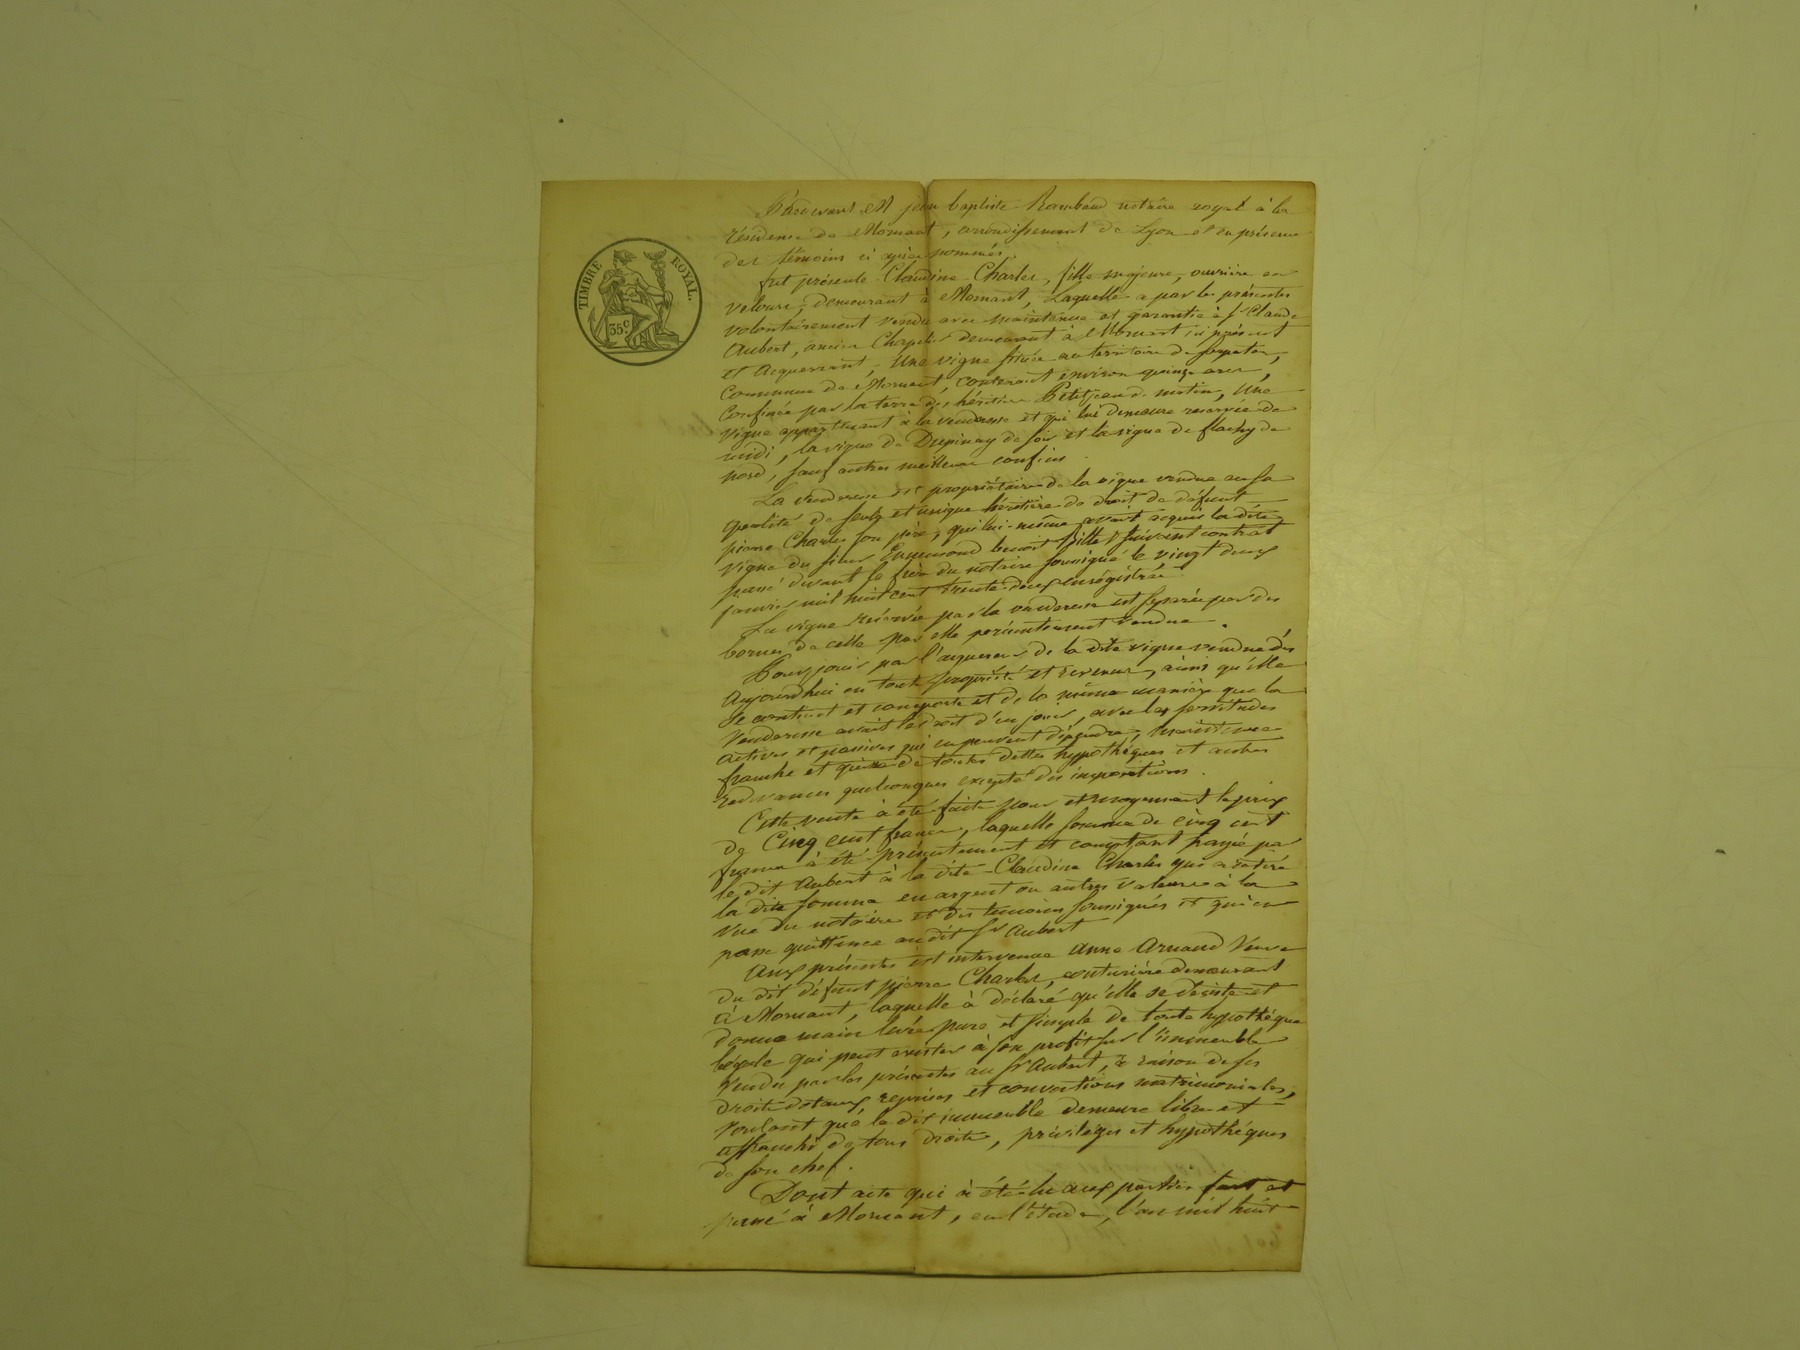 TIMBRE ROYAL.
35c
Pardevant Me jean baptiste Rambaud notaire royal à la
résidence de Mornant, arrondissement de Lyon et en présence
des témoins ci après nommés.
fut présente Claudine Charles, fille majeure, ouvrière en
velours, demeurant à Mornant, Laquelle a par les présentes
volontairement vendu avec maintenue et garantie à Sr Claude
Aubert, ancien Chapelier demeurant à Mornant ici présent
et acquérant, Une vigne située au territoire de
Commune de Mornant, contenant environ quinze ares,
Confinée par la terre des héritiers Petitjean de matin, Une
vigne appartenant à la venderesse et qui lui demeure reservée de
midi, la vigne de Drepinay de soir et la vigne de flachy de
nord, sauf autres meilleurs confins.
La venderesse est propriétaire de la vigne vendue en sa
qualité de seule et unique héritière de droit de défunt
pierre Charles son père, qui lui-même avait acquis la dite
vigne du sieur Ennemond benoit Billet suivant contrat
passé devant le frère du notaire soussigné le vingt deux
janvier mil huit cent trente deux enregistrée.
La vigne réservée par la venderesse est séparée par des
bornes de celle par elle présentement vendue.
Pour jouir par l'acquereur de la dite vigne vendue dès
Aujourd'hui en toute propriété et revenus, ainsi qu'elle
se contient et comporte et de la même manière que la
Venderesse avait le droit d'en jouir, avec les servitudes
actives et passives qui en peuvent dépendre, maintenue
franche et quitte de toutes dettes hypothèques et autres
redevances quelconques excepté des impositions.
Cette vente à été faite pour et moyennant le prix
de Cinq cent francs, laquelle somme de cinq cent
francs à été présentement et comptant payée par
le dit Aubert à la dite Claudine Charles qui a retiré
la dite somme en argent ou autres valeurs à la
vue du notaire et des témoins soussignés et qui en
passe quittance audit Sr Aubert
Aux présentes est intervenue Anne Arnaud Veuve
du dit défunt pierre Charles, couturière demeurant
à Mornant, laquelle à déclaré qu'elle se désiste et
donne main levée pure et simple de toute hypothèque
légale qui peut exister à son profit sur l'immeuble
Vendu par les présentes au Sr Aubert, à raison de ses
droits dotaux, reprises et conventions matrimoniales,
voulant que le dit immeuble demeure libre et
affranchi de tous droits, privilèges et hypothèques
de son chef.
Dont acte qui à été lu aux parties fait et
passé à Mornant, en l'étude, l'an mil huit